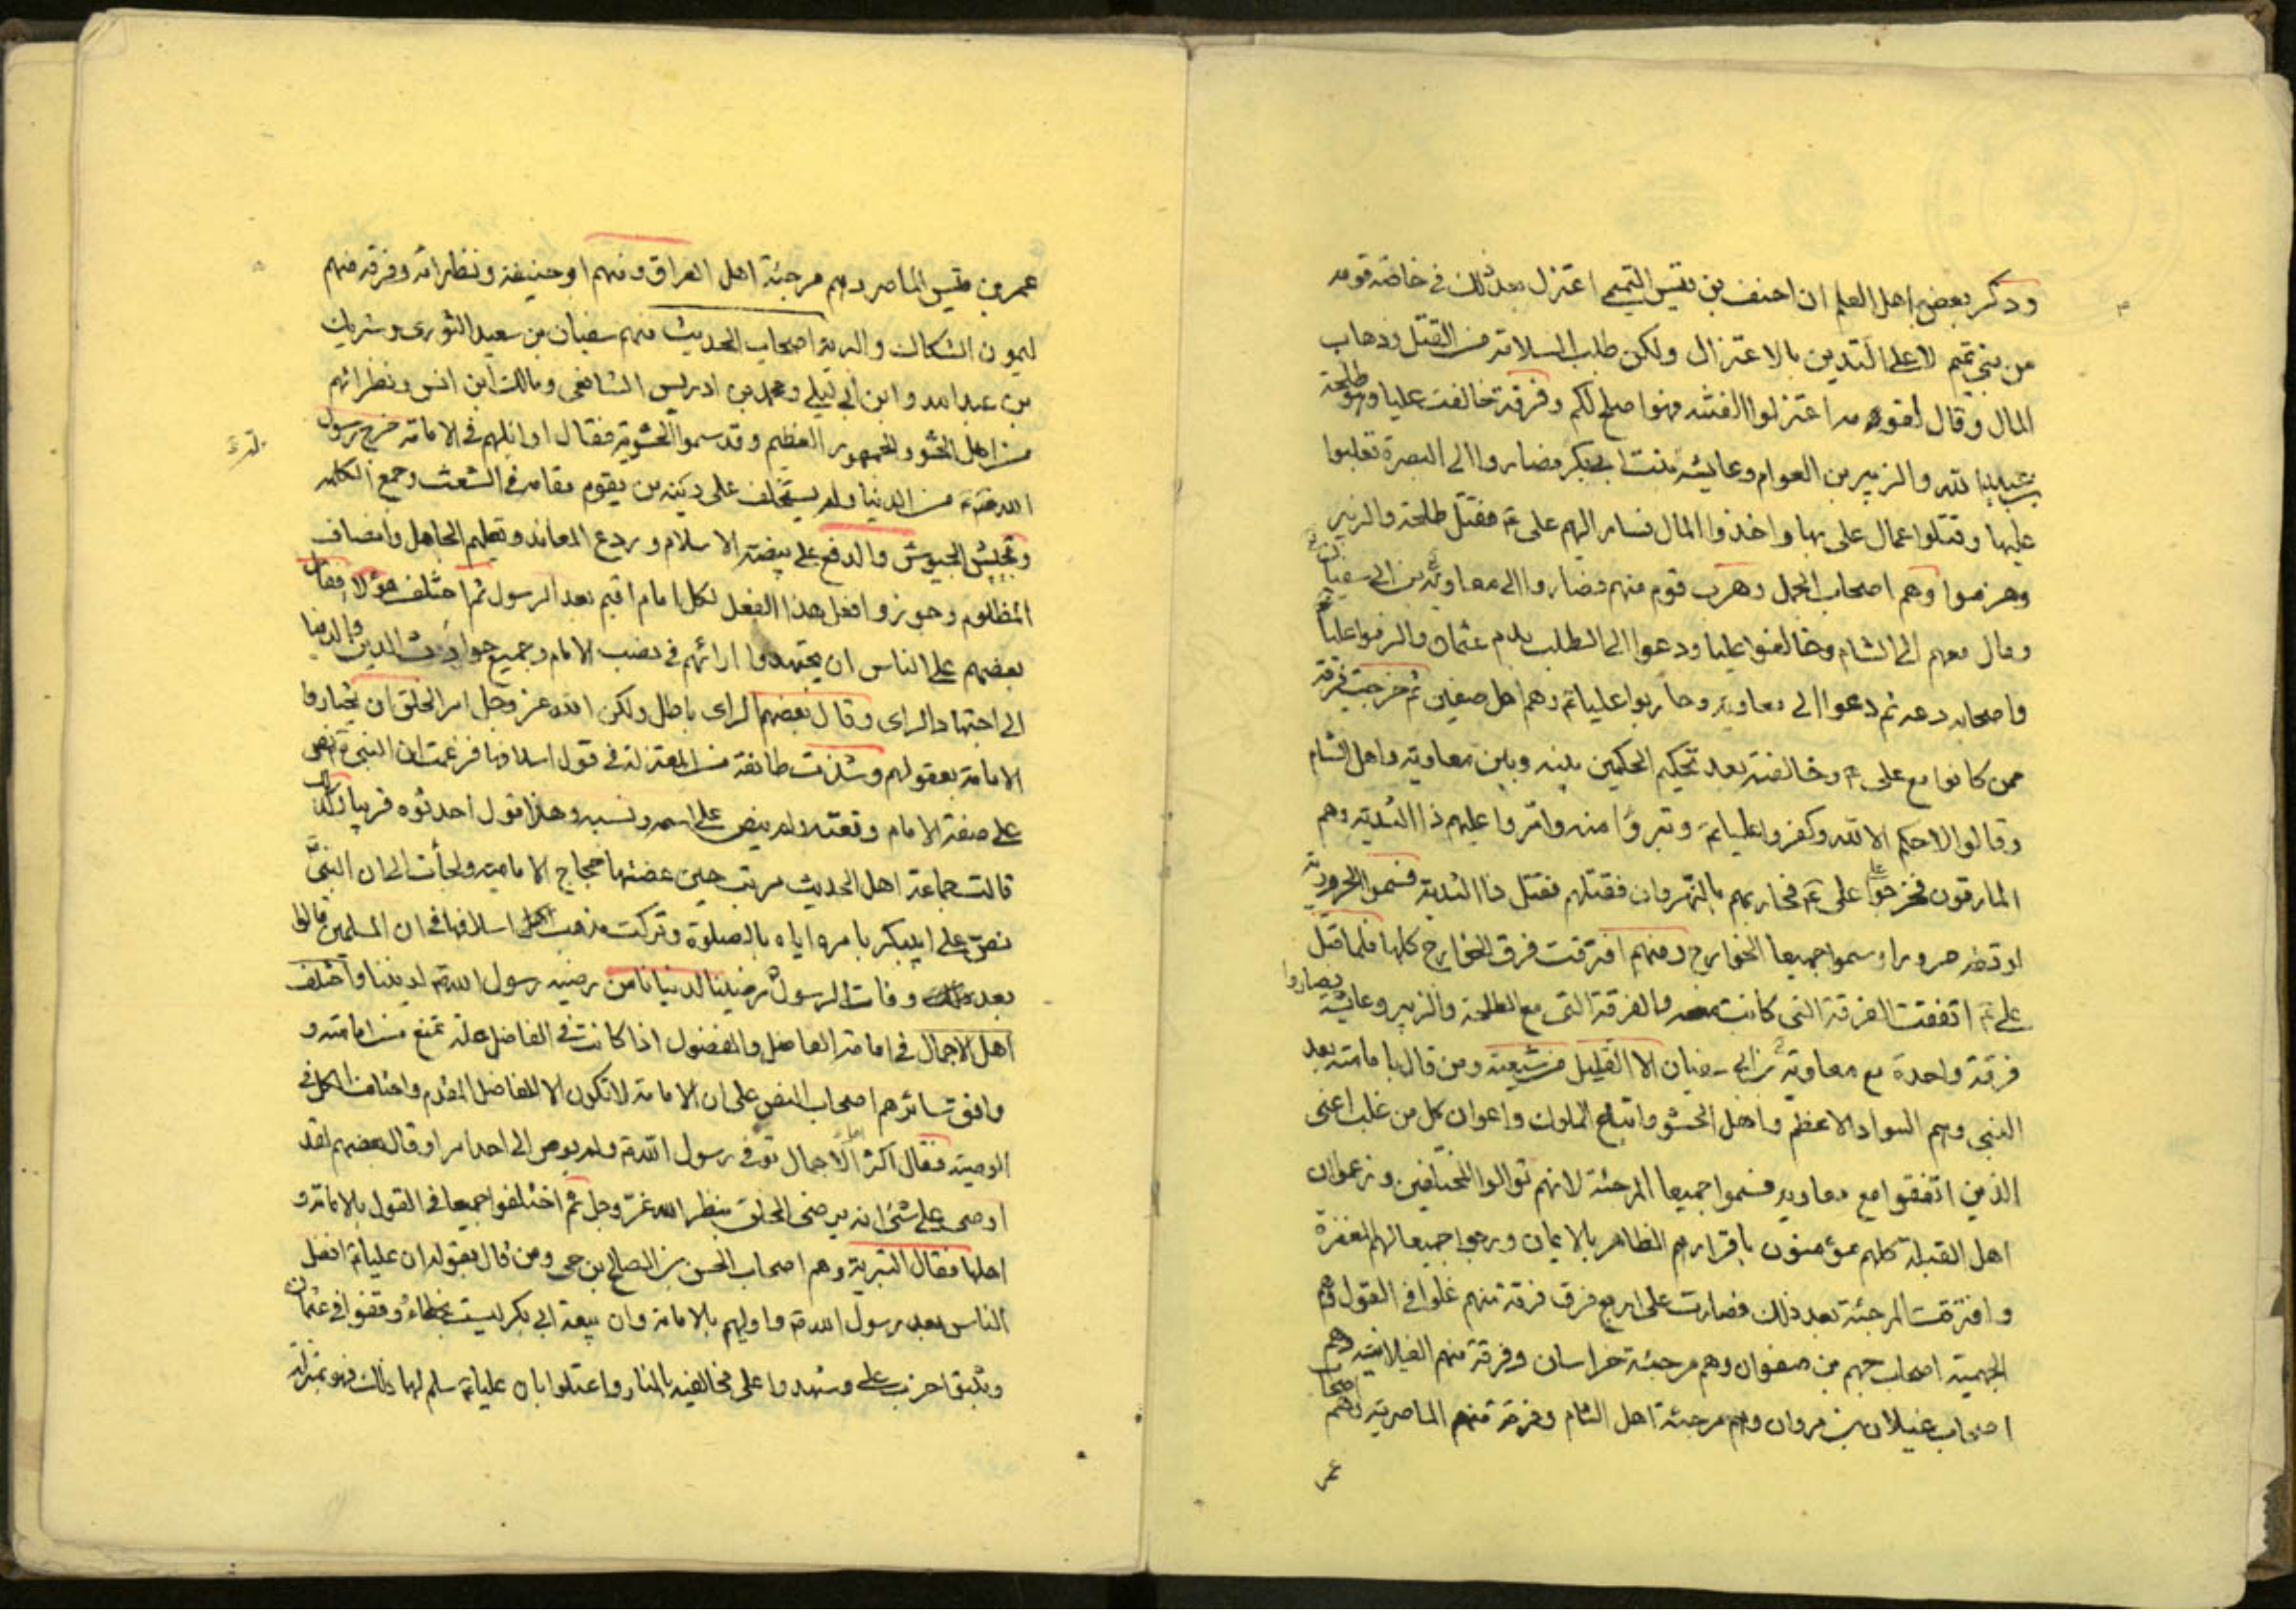 وذكر بعض اهل العلم ان احنف بن قيس التميمى اعتزل بعد ذلك فى خاصة قومه
من بنى تميم لا على التدين بالاعتزال ولكن طلب السلامة من القتل وذهاب
المال وقال لقومه اعتزلوا الفتنه فهو اصلح لكم وفرقة خالفت عليا وهو طلحة
بن عبيد الله والزبير بن العوام وعايشه بنت ابى بكر فصاروا الى البصرة فغلبوا
عليها وقتلوا عمال على بها واخذوا المال فسار اليهم على ع فقتل طلحة والزبير
وهزموا وهم اصحاب الجمل وهرب قوم منهم فصاروا الى معاوية بن ابى سفيان
ومال معهم الى الشام وخالفوا عليا ودعوا الى الطلب بدم عثمان والزموا عليا
واصحابه دمه ثم دعوا الى معاويه وحاربوا عليا ع وهم اهل صفين ثم خرجت فرقة
ممن كانوا مع على ع وخالفته بعد تحكيم الحكمين بينه وبين معاويه واهل الشام
وقالوا لا حكم الا لله وكفروا عليا ع وتبرؤا منه وامروا عليهم ذا الثديه وهم
المارقون فخرجوا على ع فحاربهم بالنهروان فقتلهم فقتل ذا الثدية فسموا الحرورية
لوقعة حرورا وسموا جميعا الخوارج ومنهم افترقت فرق الخوارج كلها فلما قتل
على ع اتفقت الفرقة التى كانت معه والفرقة التى مع الطلحة والزبير وعايشة فصاروا
فرقة واحدة مع معاوية بن ابى سفيان الا القليل من شيعته ومن قال بامامته بعد
النبى وهم السواد الاعظم واهل الحشو واتباع الملوك واعوان كل من غلب اعنى
الذين اتفقوا مع معاويه فسموا جميعا المرجئة لانهم توالوا المختلفين وزعموا ان
اهل القبلة كلهم مؤمنون باقرارهم الظاهر بالايمان ورجوا جميعا لهم المغفرة
وافترقت المرجئة بعد ذلك فصارت على اربع فرق فرقة منهم غلوا فى القول وهم
الجهمية اصحاب جهم بن صفوان وهم مرجئة خراسان وفرقة منهم الغيلانيه وهم
اصحاب غيلان بن مروان وهم مرجئة اهل الشام وفرقة منهم الماصرية وهم اصحاب
عمر
عمر بن قيس الماصر وهم مرجئة اهل العراق ومنهم ابو حنيفة ونظرائه وفرقه منهم
يسمون الشكاك والبتريه اصحاب الحديث منهم سفيان بن سعيد الثورى وشريك
بن عبد الله وابن ابى ليلى ومحمد بن ادريس الشافعى ومالك ابن انس ونظرائهم
من اهل الحشو والجمهور العظيم وقد سموا الحشوية فقال اوايلهم فى الامامة خرج رسول
الله ص من الدنيا ولم يستخلف على دينه من يقوم مقامه فى الشعث وجمع الكلمه
وتجيش الجيوش والدفع على بيضة الاسلام وردع المعاند وتعليم الجاهل وانصاف
المظلوم وجوزوا فعل هذا الفعل لكل امام اقيم بعد الرسول ثم اختلف هؤلاء فقال
بعضهم على الناس ان يجتهدوا ارائهم فى نصب الامام وجميع حوادث الدين والدنيا
الى اجتهاد الراى وقال بعضهم الراى باطل ولكن الله عز وجل امر الخلق ان يختاروا
الامامة بعقولهم وشذت طائفة من المعتزلة فى قول اسلافها فزعمت ان النبى ص نص
على صفة الامام ونعته ولم ينص على اسمه ونسبه وهذا قول احدثوه قريبا وكذلك
قالت جماعة اهل الحديث هربت حين عضتها حجاج الامامية ولجأت الى ان النبى
نص على ابى بكر بامره اياه بالصلوة وتركت مذهب اسلافها فى ان المسلمين قالوا
بعد وفات الرسول رضينا لدنيانا من رضيه رسول الله ص لديننا واختلف
اهل الاجمال فى امامة الفاضل والمفضول اذا كانت فى الفاضل علة تمنع من امامته و
وافق سائرهم اصحاب النص على ان الامامة لا تكون الا للفاضل المقدم واختلف الكل فى
الوصية فقال اكثر اهل الاجمال توفى رسول الله ص ولم يوص الى احد امرا وقال بعضهم لقد
اوصى على شئ انه يرضى الخلق بنظر الله عز وجل ثم اختلفوا جميعا فى القول بالامامة و
اهلها فقال البترية وهم اصحاب الحسن بن الصالح بن حى ومن قال بقوله ان عليا ع افضل
الناس بعد رسول الله ص واوليهم بالامامة وان بيعة ابى بكر ليست بخطاء ووقفوا فى عثمان
وشهدوا على مخالفيه بالنار واعتلوا بان عليا ع سلم لهما ذلك فهو بمنزلة